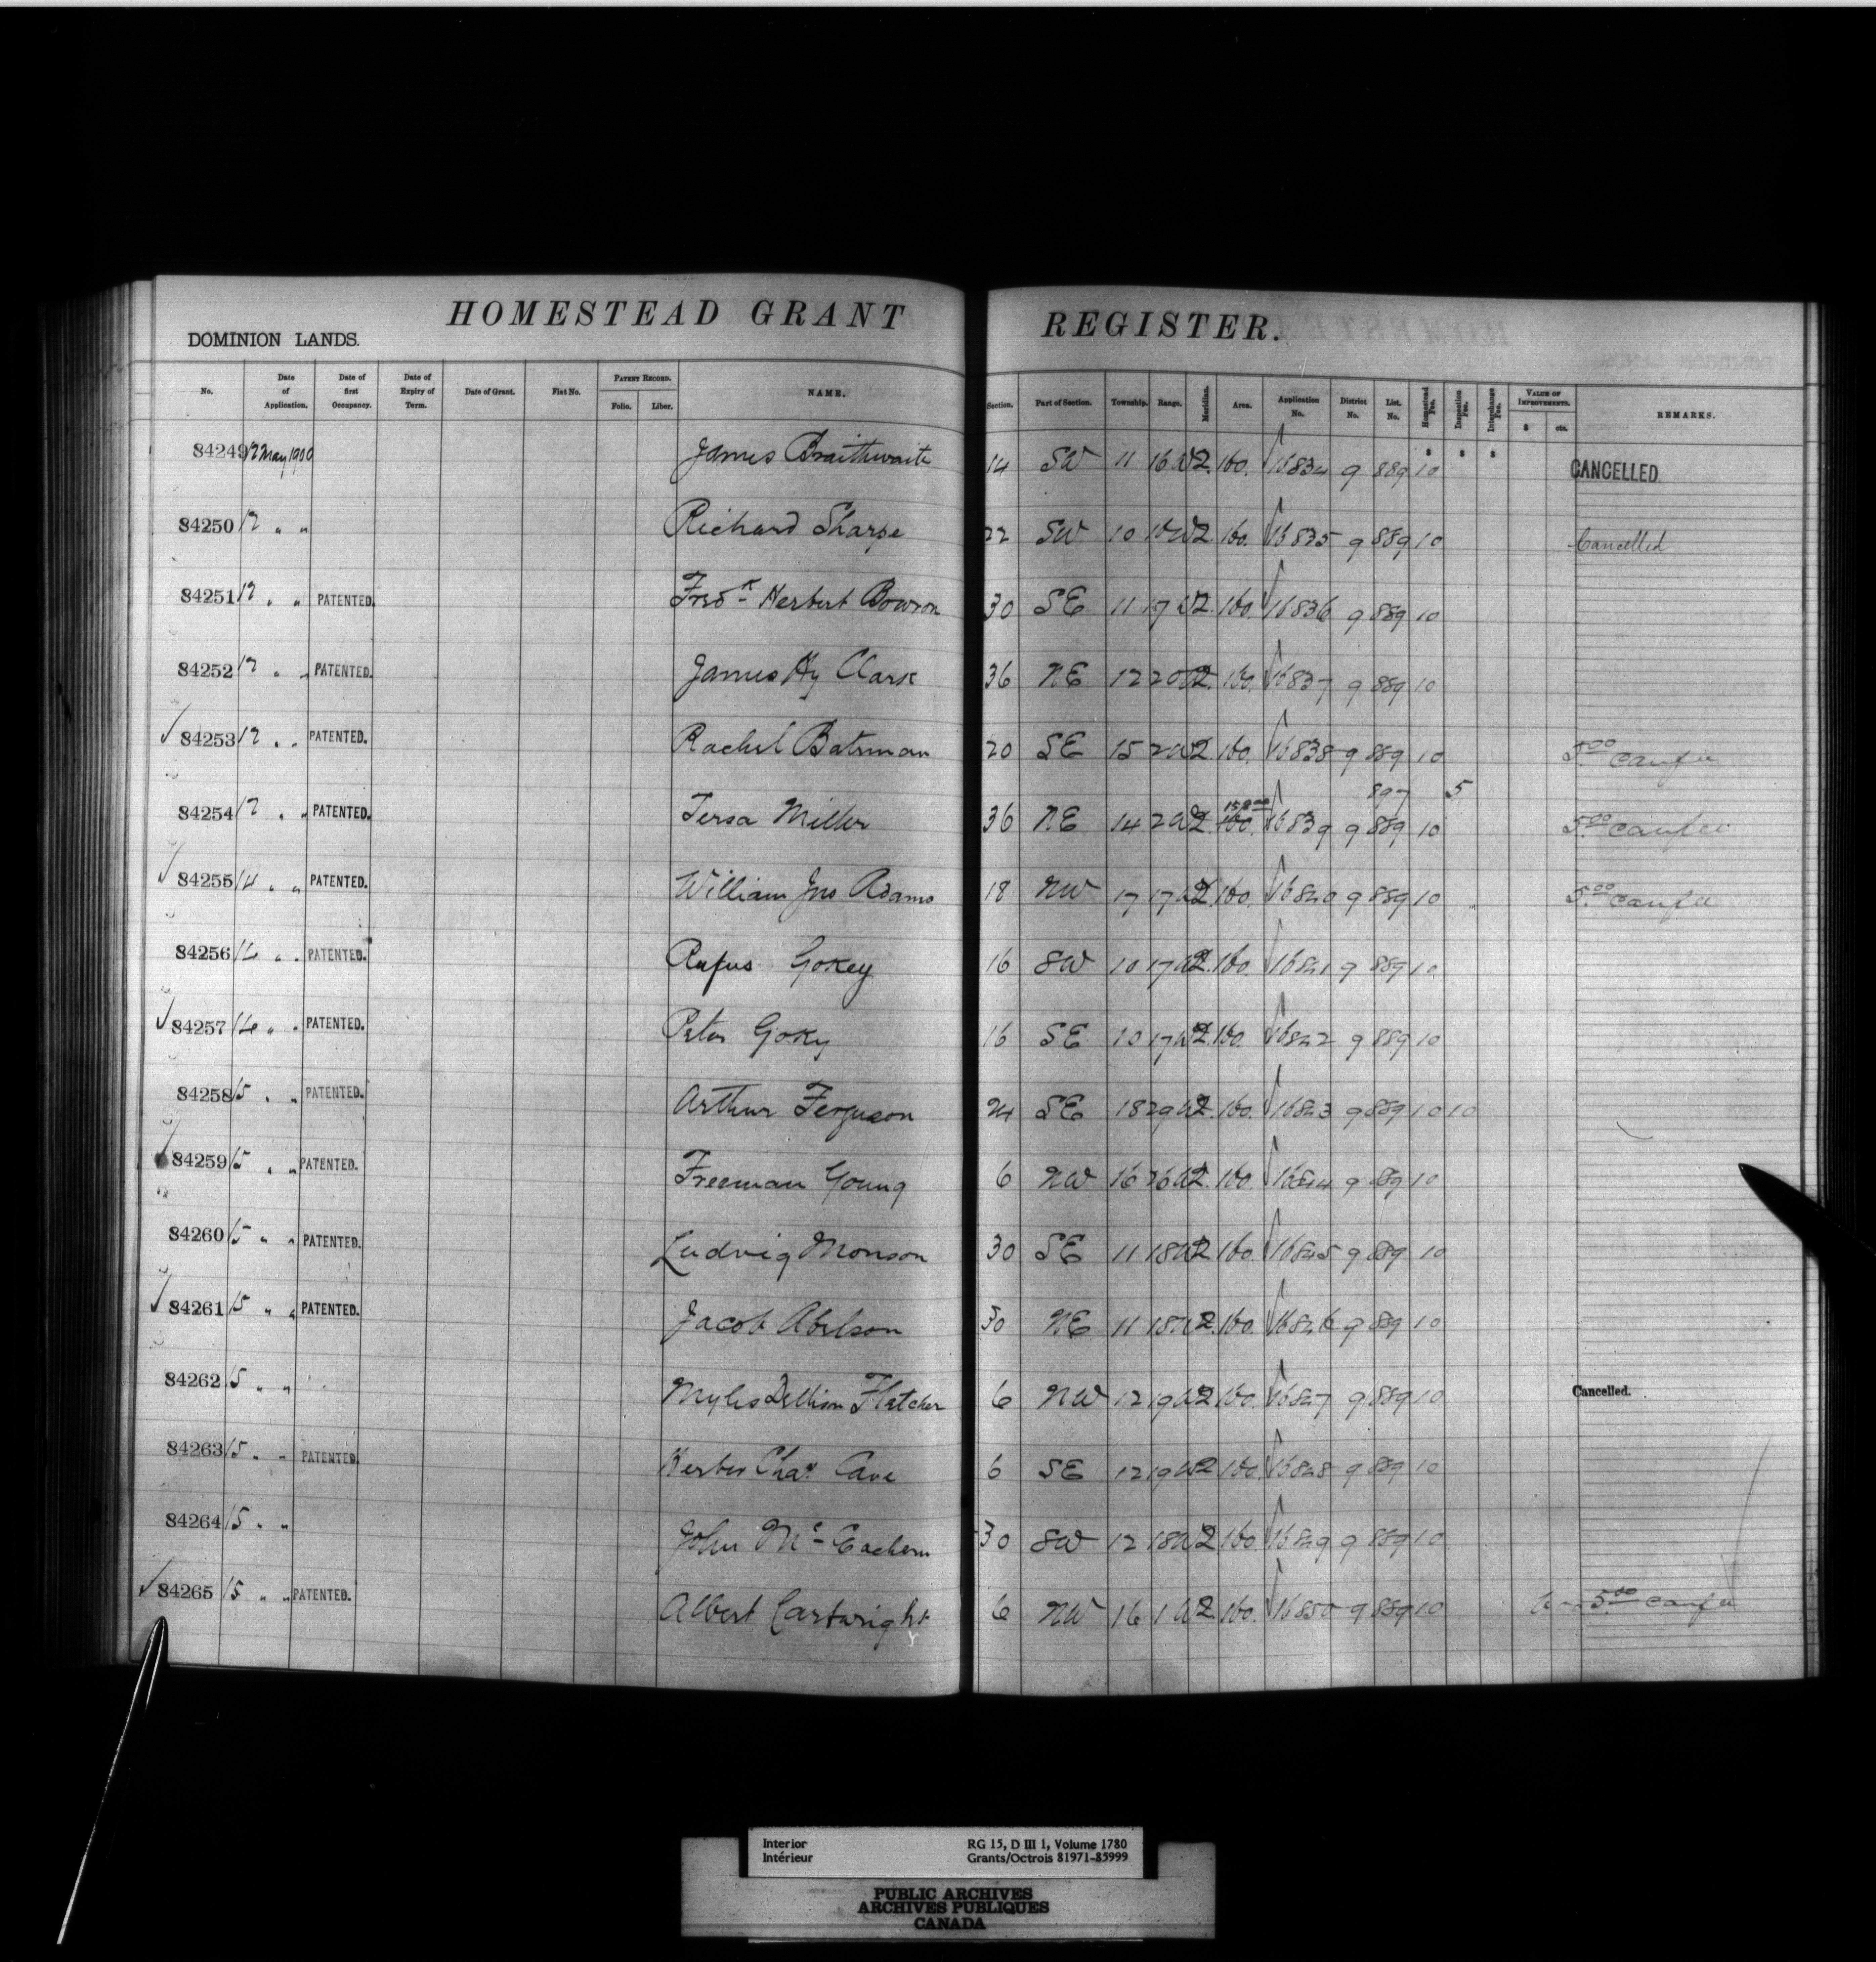 HOMESTEAD GRANT REGISTER.
DOMINION LANDS.
No. Date of Application. Date of first Occupancy. Date of Expiry of Term. Date of Grant. Fiat No. PATENT RECORD. Folio. Liber. NAME. Section. Part of Section. Township. Range. Meridian. Area. Application No. District No. List. No. Homestead Fee. Inspection Fee. Interchange Fee. VALUE OF IMPROVEMENTS. $ cts. REMARKS.
$ $ $
84249 12 May 1900 James Braithwaite 14 SW 11 16 W2. 160. 16834 9 889 10 CANCELLED.
84250 12 " " Richard Sharpe 22 SW 10 W2. 160. 16835 9 889 10 Cancelled
84251 12 " " PATENTED. Fred-k Herbert Bowron 30 SE 11 17 W2. 160. 16836 9 889 10
84252 12 " " PATENTED. James Hy Clark 36 NE 12 20 W2. 160. 16837 9 889 10
84253 12 " " PATENTED. Rachel Bateman 20 SE 15 2 W2. 160. 16838 9 889 10 5.00 canfee
158.00 897 5
84254 12 " " PATENTED. Tersa Miller 36 NE 14 2 W2. 160. 16839 9 889 10 5.00 canfee
84255 14 " " PATENTED. William Jno Adams 18 NW 17 17 W2. 160. 16840 9 889 10 5.00 canfee
84256 14 " " PATENTED. Rufus Gokey 16 SW 10 17 W2. 160. 16841 9 889 10
84257 14 " " PATENTED. Peter Goky 16 SE 10 17 W2. 160. 16842 9 889 10
84258 15 " " PATENTED. Arthur Ferguson 24 SE 18 29 W2. 160. 16843 9 889 10 10
84259 15 " " PATENTED. Freeman Young 6 NW 16 26 W2. 160. 16844 9 889 10
84260 15 " " PATENTED. Ludvig Monson 30 SE 11 18 W2. 160. 16845 9 889 10
84261 15 " " PATENTED. Jacob Abelson 30 NE 11 18 W2. 160. 16846 9 889 10
84262 15 " " Myles Fletcher 6 NW 12 19 W2 160. 16847 9 889 10 Cancelled.
84263 15 " " PATENTED. Chas Cave 6 SE 12 19 W2 160. 16848 9 889 10
84264 15 " " John Mc Eachern 30 SW 12 18 W2 160. 16849 9 889 10
84265 15 " " PATENTED. Albert Cartwright 6 NW 16 1 W2. 160. 16850 9 889 10 5.00 canfee
Interior RG 15, D III 1, Volume 1780
Intérieur Grants/Octrois 81971-85999
PUBLIC ARCHIVES
ARCHIVES PUBLIQUES
CANADA